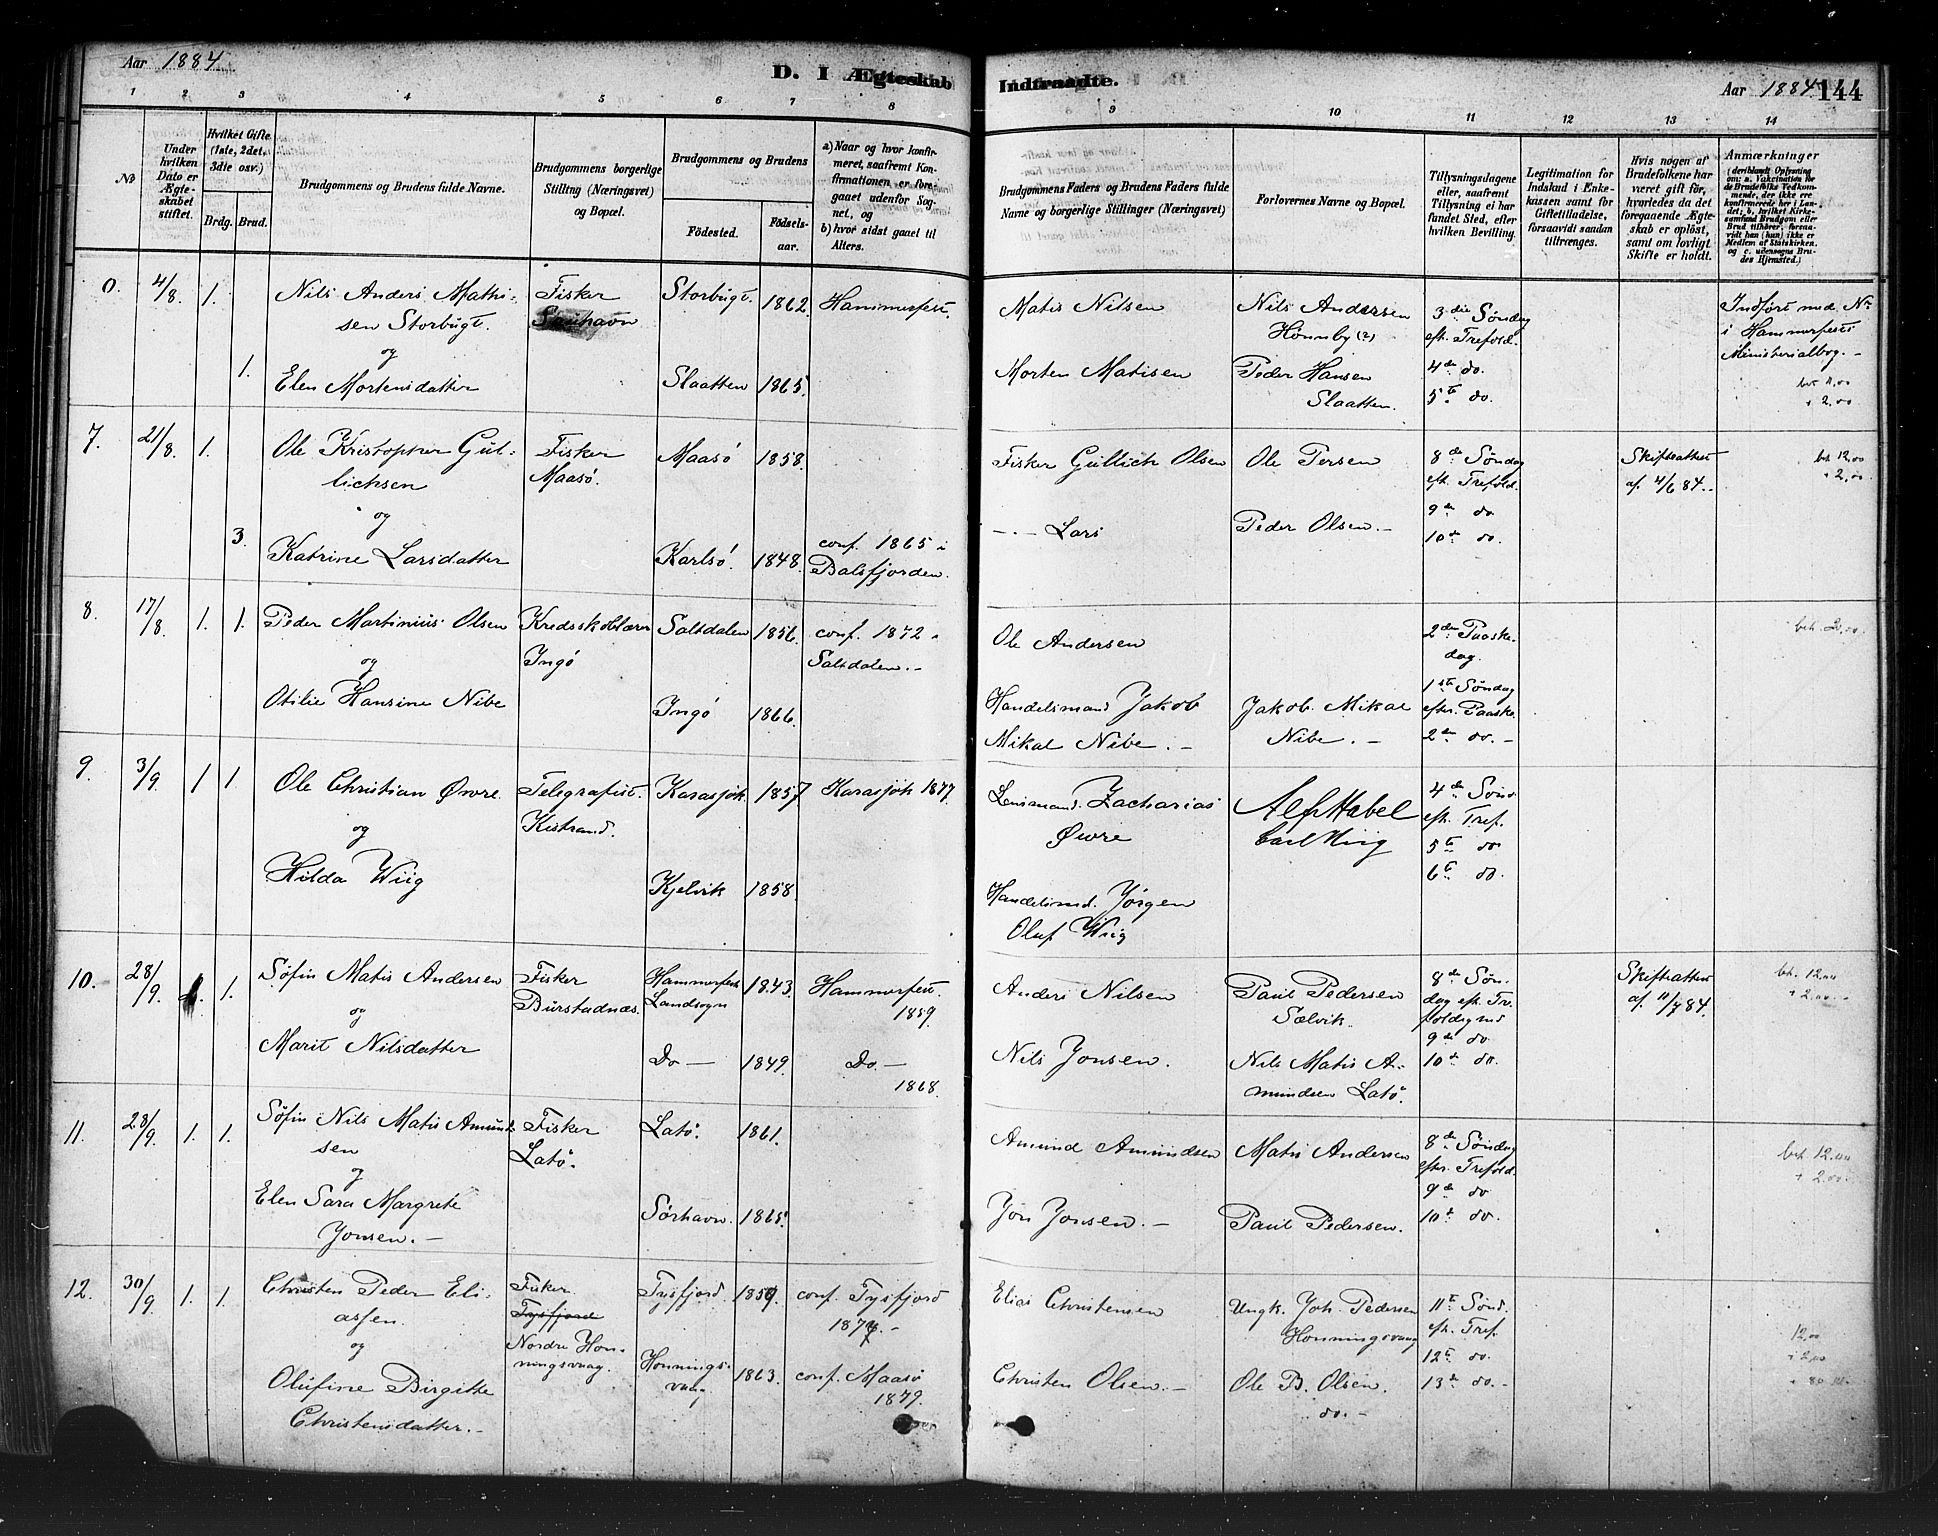 Aar 1884
D. I Ægteskab Indtraadte.
Aar 1884
144
1 2 3 4 5 6 7 8 9 10 11 12 13 14
No
Under hvilken Dato er Ægteskabet stiftet.
Hvilket Gifte (1ste, 2det, 3die osv.)
Brdg. Brud.
Brudgommens og Brudens fulde Navne.
Brudgommens borgerlige Stilling (Næringsvei) og Bopæl.
Brudgommens og Brudens
Fødested.
Fødselsaar.
a) Naar og hvor konfirmeret, saafremt Konfirmationen er foregaaet udenfor Sognet, og
b) hvor sidst gaaet til Alters.
Brudgommens Faders og Brudens Faders fulde Navne og borgerlige Stillinger (Næringsvei)
Forlovernes Navne og Bopæl.
Tillysningsdagene eller, saafremt Tillysning ei har fundet Sted, efter hvilken Bevilling.
Legitimation for Indskud i Enkekassen samt for Giftetilladelse, forsaavidt saadan tiltrænges.
Hvis nogen af Brudefolkene har været gift før, hvorledes da det foregaaende Ægteskab er opløst, samt om lovligt Skifte er holdt.
Anmærkninger
(deriblandt Oplysning om: a. Vaccination for de Brudefolks Vedkommende, der ikke er konfirmerede her i Landet; b. hvilket Kirkesamfund Brudgom eller Brud tilhører, forsaavidt han (hun) ikke er Medlem af Statskirken, og c. udensogns Brudes Hjemsted.)
0. 4/8. 1.
Nils Anders Mathisen Storbugt.
og
1. Elen Mortensdatter
Fisker
Storbugt. 1862. Hammerfest.
Slaatten 1865.
Matis Nilsen
Morten Matisen
Nils Andersen
Honnby (?)
Peder Hansen
Slaatten.
3die Søndag
eft. Trefold.
4de do.
5te do.
Indført med No
i Hammerfests
Ministerialbog.-
bet. 11,00
+ 2,00
7. 21/8. 1.
Ole Kristopher Gullichsen
og
3. Katrine Larsdatter
Fisker
Maasø.
Maasø 1858.
Karlsø. 1848.
conf. 1865 i
Balsfjorden.
Fisker Gullich Olsen
-.- Lars
Ole Persen
Peder Olsen.-
8de Søndag
eft. Trefold.
9de do
10de do.
Skifteattest
af. 4/6 84.
bet. 12,00
+ 2,00
8. 17/8. 1. 1.
Peder Martinius Olsen
og
Otilie Hansine Nibe
Kredsskolelærer
Ingø
Saltdalen 1856.
Ingø 1866.
conf. 1872 i
Saltdalen.-
Ole Andersen
Handelsmand Jakob
Mikal Nibe.-
Jakob Mikal
Nibe.-
2den Paaskedag.
1ste Søndag
efter Paaske
2den do.-
bet. 20,00.
9. 3/9. 1 1.
Ole Christian Øvre
og
Hilda Wiig
Telegrafist.
Kistrand.
Karasjok. 1857
Kjelvik 1858.
Karasjok 1877
Lensmand Zacharias
Øvre
Handelsmd. Jørgen
Oluf Wiig
Alf Habel
Carl Wiig
4de Sønd.
eft. Tref.
5te do
6te do.
10. 28/9. 1.
Søfin Matis Andersen
og
Marit Nilsdatter
Fisker
Burstadnæs.
Hammerfest
Landsogn 1843.
Do - 1849.
Hammerfest.
1859.
Do.-
1868.
Anders Nilsen
Nils Jonsen.
Paul Pedersen
Sælvik.
Nils Matis Amundsen Latø.
8de Søndag eft. Trefoldighed
9de do
10de do.
Skifteattest
af. 11/7 84.
bet. 12,00
+ 2,00.-
11. 28/9. 1. 1.
Søfin Nils Matis Amundsen
og
Elen Sara Margrete
Jonsen.-
Fisker
Latø.
Latø. 1861.
Sørhavn. 1865.
Amund Amundsen
Jon Jonsen.-
Matis Andersen
Paul Pedersen.
8de Søndag
eftr. Trefold.
9de do
10de do.
bet. 12,00
+ 2,00.
12. 30/9. 1. 1.
Christen Peder Eliassen.
og
Olufine Birgitte
Christensdatter.-
Fisker
Tysfjord
Nordre Honningsvaag.
Tysfjord. 1859.
Honningsvaag 1863.
conf. Tysfjord
1874.-
conf. Maasø
1879.
Elias Christensen
Christen Olsen.-
Ungk. Joh. Pedersen
Honningsvaag
Ole B. Olsen.
do.-
11te Sønd.
eft. Tref.
12te do.
13de do.-
12,00
+ 2,00